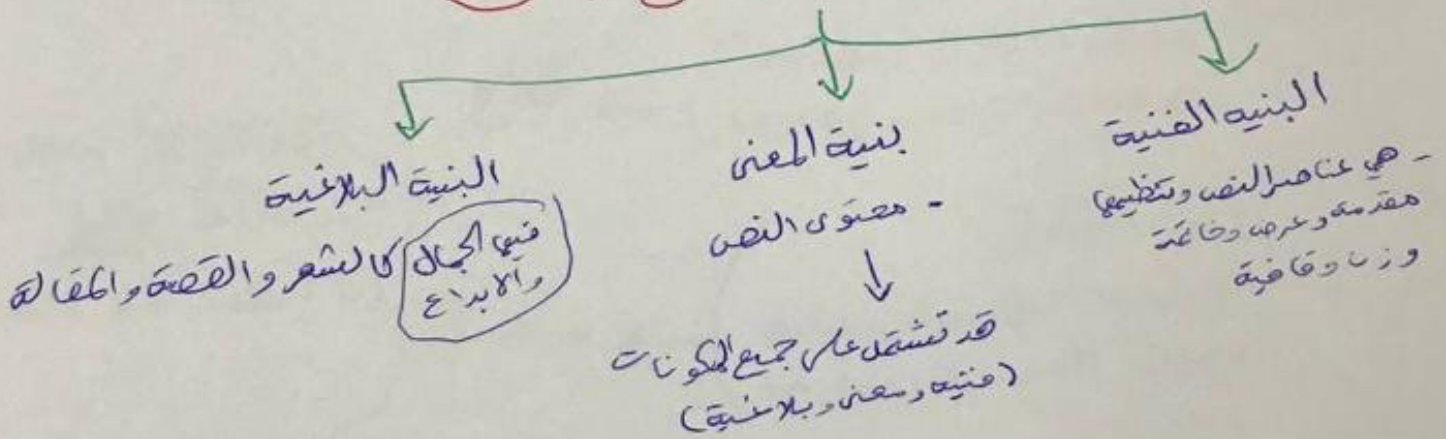 البنيه الفنية
- هي عناصر النص وتنظيمها
مقدمة وعرض وخاتمة
وزن وقافية
بنية المعنى
- محتوى النص
قد تشتمل على جميع المكونات
(فنيه ومعنى وبلاغية)
البنية البلاغية
فيها الجمال
والابداع
كالشعر والقصة والمقالة